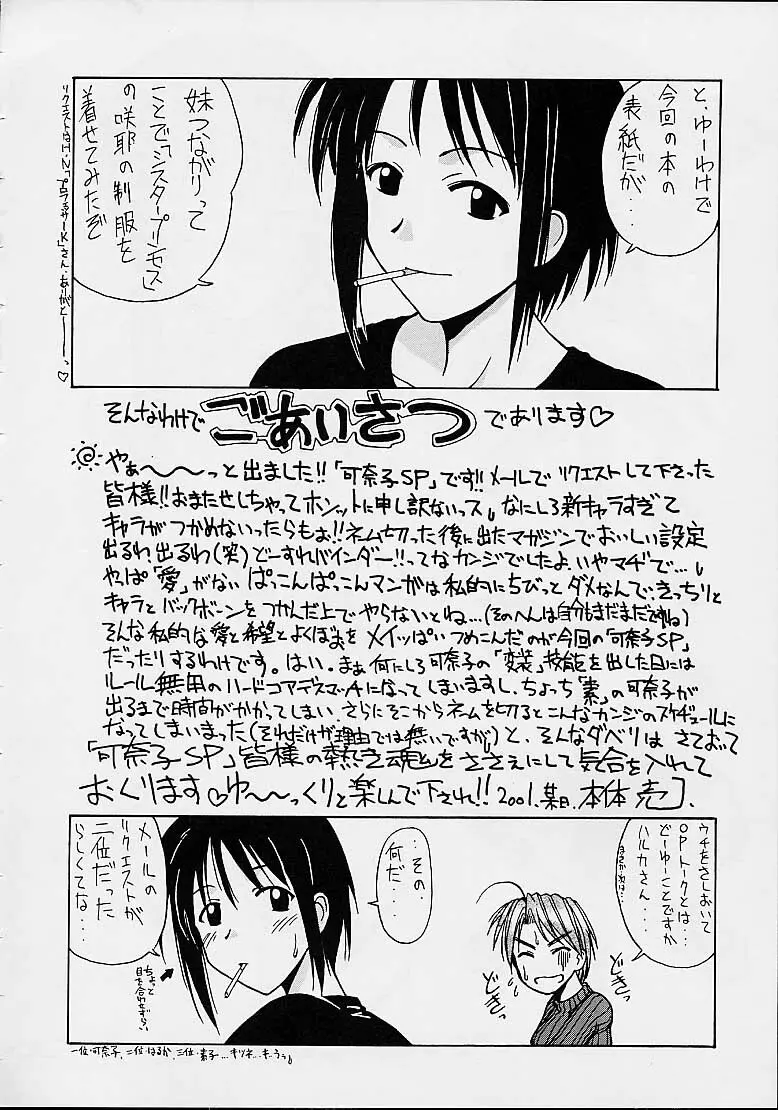 と、ゆーわけで
今回の本の
表紙だが・・・
妹つながりって
ことで「シスタープリンセス」
の咲耶の制服を
着せてみたぞ
そんなわけで ごあいさつ であります♡
やぁ〜〜〜っと出ました!!「可奈子SP」です!!メールでリクエストして下さった
皆様!!おまたせしちゃってホンットに申し訳ないっス なにしろ新キャラすぎて
キャラがつかめないったらもぉ!!ネーム切った後に出たマガジンでおいしい設定
出るわ、出るわ(笑)どーすればインダー!!ってなカンジでしたよ、いやマヂで…
やっぱ「愛」がない ぱっこんぱっこんマンガは私的にちびっとダメなんで、きっちりと
キャラとバックボーンをつかんだ上でやらないとね…(そのへんは自分もまだまだですね)
そんな私的な愛と希望とよくぼおをメイッぱいつめこんだのが今回の「可奈子SP」
だったりするわけです。はい。まぁ何にしろ可奈子の「変装」技能を出した日には
ルール無用のハードコアデスマッチになってしまいますし、ちょっち「素」の可奈子が
出るまで時間がかかってしまい さらにそこからネームを切るとこんなカンジのスケヂュールに
なってしまいまった(それだけが理由では無いですが)と、そんなダベリはさておいて
「可奈子SP」皆様の熱き魂をささえにして気合を入れて
おくります♡ゆ〜〜っくりと楽しんで下され!!2001.某日.本体 売
ウチをさしおいて
OPトークとは・・
どーゆーことですか
ハルカさん・・・
・・その
何だ・・
メールの
リクエストが
二位だった
らしくてな・・・
ちょっと
目を合わせずらい
どきっ
どきっ
一位・可奈子、二位・はるか、三位・素子…キツネ…キ・うぅ